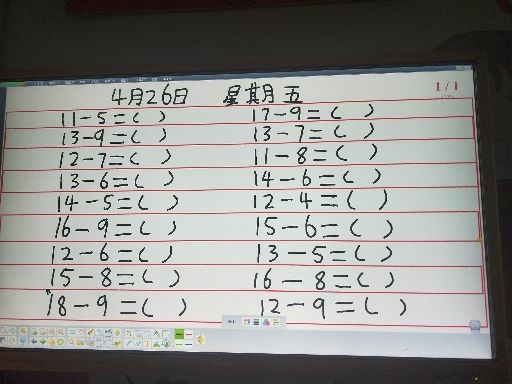 4月26日 星期五
1/1
11-5=( ) 17-9=( )
13-9=( ) 13-7=( )
12-7=( ) 11-8=( )
13-6=( ) 14-6=( )
14-5=( ) 12-4=( )
16-9=( ) 15-6=( )
12-6=( ) 13-5=( )
15-8=( ) 16-8=( )
18-9=( ) 12-9=( )